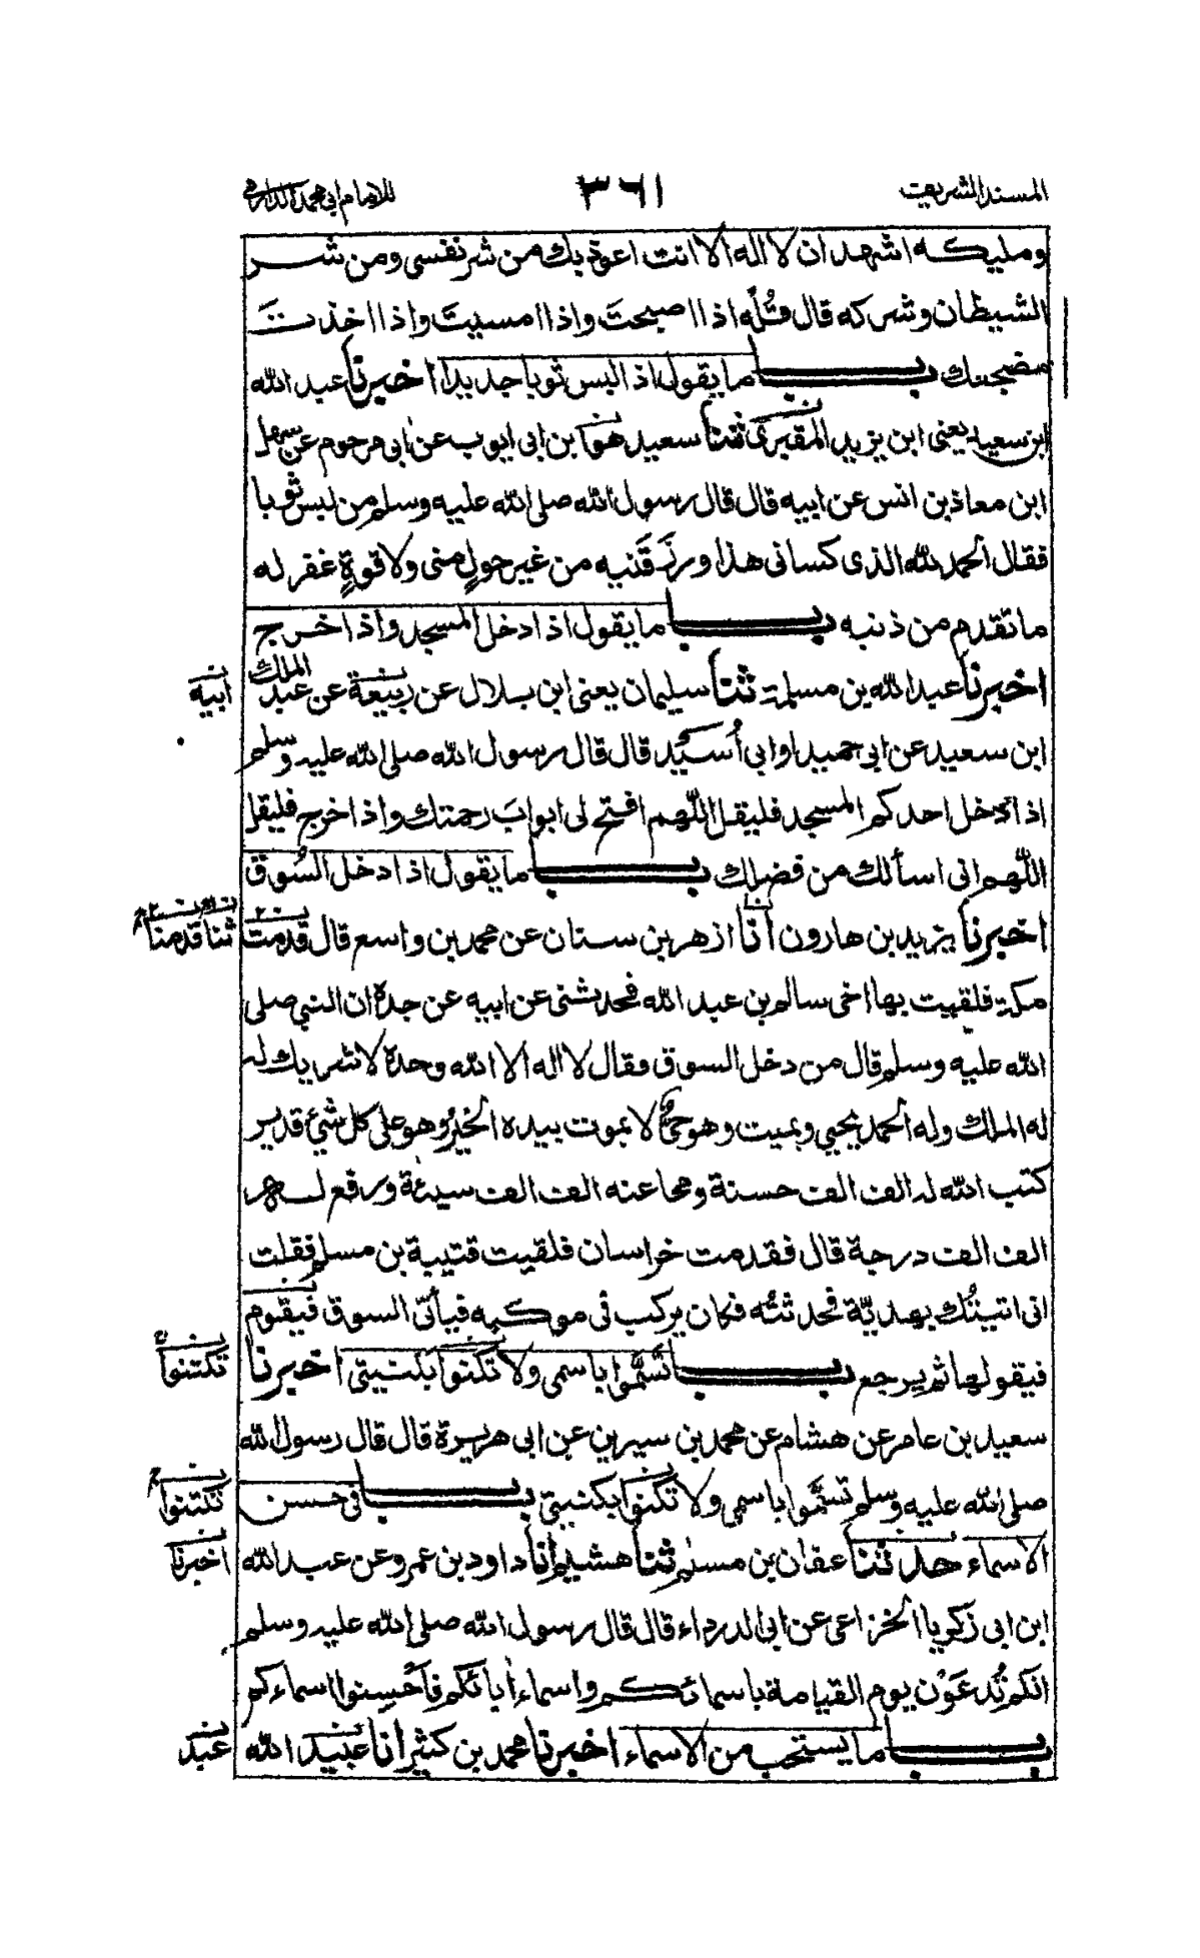 المسند الشريف
٣٦١
للامام ابي محمد الدارمي
ومليكه اشهد ان لا اله الا انت اعوذ بك من شر نفسي ومن شر
الشيطان وشركه قال قُلْه اذا اصبحتَ واذا امسيتَ واذا اخذتَ
مضجعك باب ما يقول اذا لبس ثوبا جديدا اخبرنا عبد الله
ابن سعيد يعنى ابن يزيد المقبرى ثنا سعيد هو ابن ابى ايوب عن ابى مرحوم عن سهل
ابن معاذ بن انس عن ابيه قال قال رسول الله صلى الله عليه وسلم من لبس ثوبا
فقال الحمد لله الذى كسانى هذا ورزقنيه من غير حولٍ منى ولا قوةٍ غفر له
ما تقدم من ذنبه باب ما يقول اذا دخل المسجد واذا خرج
اخبرنا عبد الله بن مسلمة ثنا سليمان يعنى ابن بلال عن ربيعة عن عبد الملك
ابيه
ابن سعيد عن ابى حميد او ابي أُسَيْد قال قال رسول الله صلى الله عليه وسلم
اذا دخل احدكم المسجد فليقل اللّٰهم افتح لى ابوابَ رحمتك واذا خرج فليقل
اللّٰهم انى اسألك من فضلك باب ما يقول اذا دخل السُوق
اخبرنا يزيد بن هارون أنا ازهر بن سنان عن محمد بن واسع قال قدمت
ثنا قدمنا
مكة فلقيت بها اخى سالم بن عبد الله فحدثنى عن ابيه عن جده ان النبي صلى
الله عليه وسلم قال من دخل السوق فقال لا اله الا الله وحده لا شريك له
له الملك وله الحمد يحيي ويميت وهو حيٌّ لا يموت بيده الخيرُ وهو على كل شئ قدير
كتب الله له الف الف حسنة ومحا عنه الف الف سيئة ورفع له
الف الف درجة قال فقدمت خراسان فلقيت قتيبة بن مسلم فقلت
انى اتيتُك بهديّة فحدثتُه فكان يركب فى موكبه فيأتى السوق فيقوم
فيقولها ثم يرجع باب تسَمَّوا باسمى ولا تكنوا بكنيتى اخبرنا
تكتنوا
سعيد بن عامر عن هشام عن محمد بن سيرين عن ابى هريرة قال قال رسول الله
صلى الله عليه وسلم تسَمَّوا باسمي ولا تكنوا بكنيتي باب فى حسن
تكتنوا
الاسماء حدثنا عفان بن مسلم ثنا هشيم أنا داود بن عمرو عن عبد الله
اخبرنا
ابن ابى زكريا الخزاعى عن ابى الدرداء قال قال رسول الله صلى الله عليه وسلم
انكم تُدعَوْن يوم القيامة باسمائكم واسماء اٰبائكم فاَحْسِنوا اسماءكم
باب ما يستحب من الاسماء اخبرنا محمد بن كثير انا عبيد الله
عبد